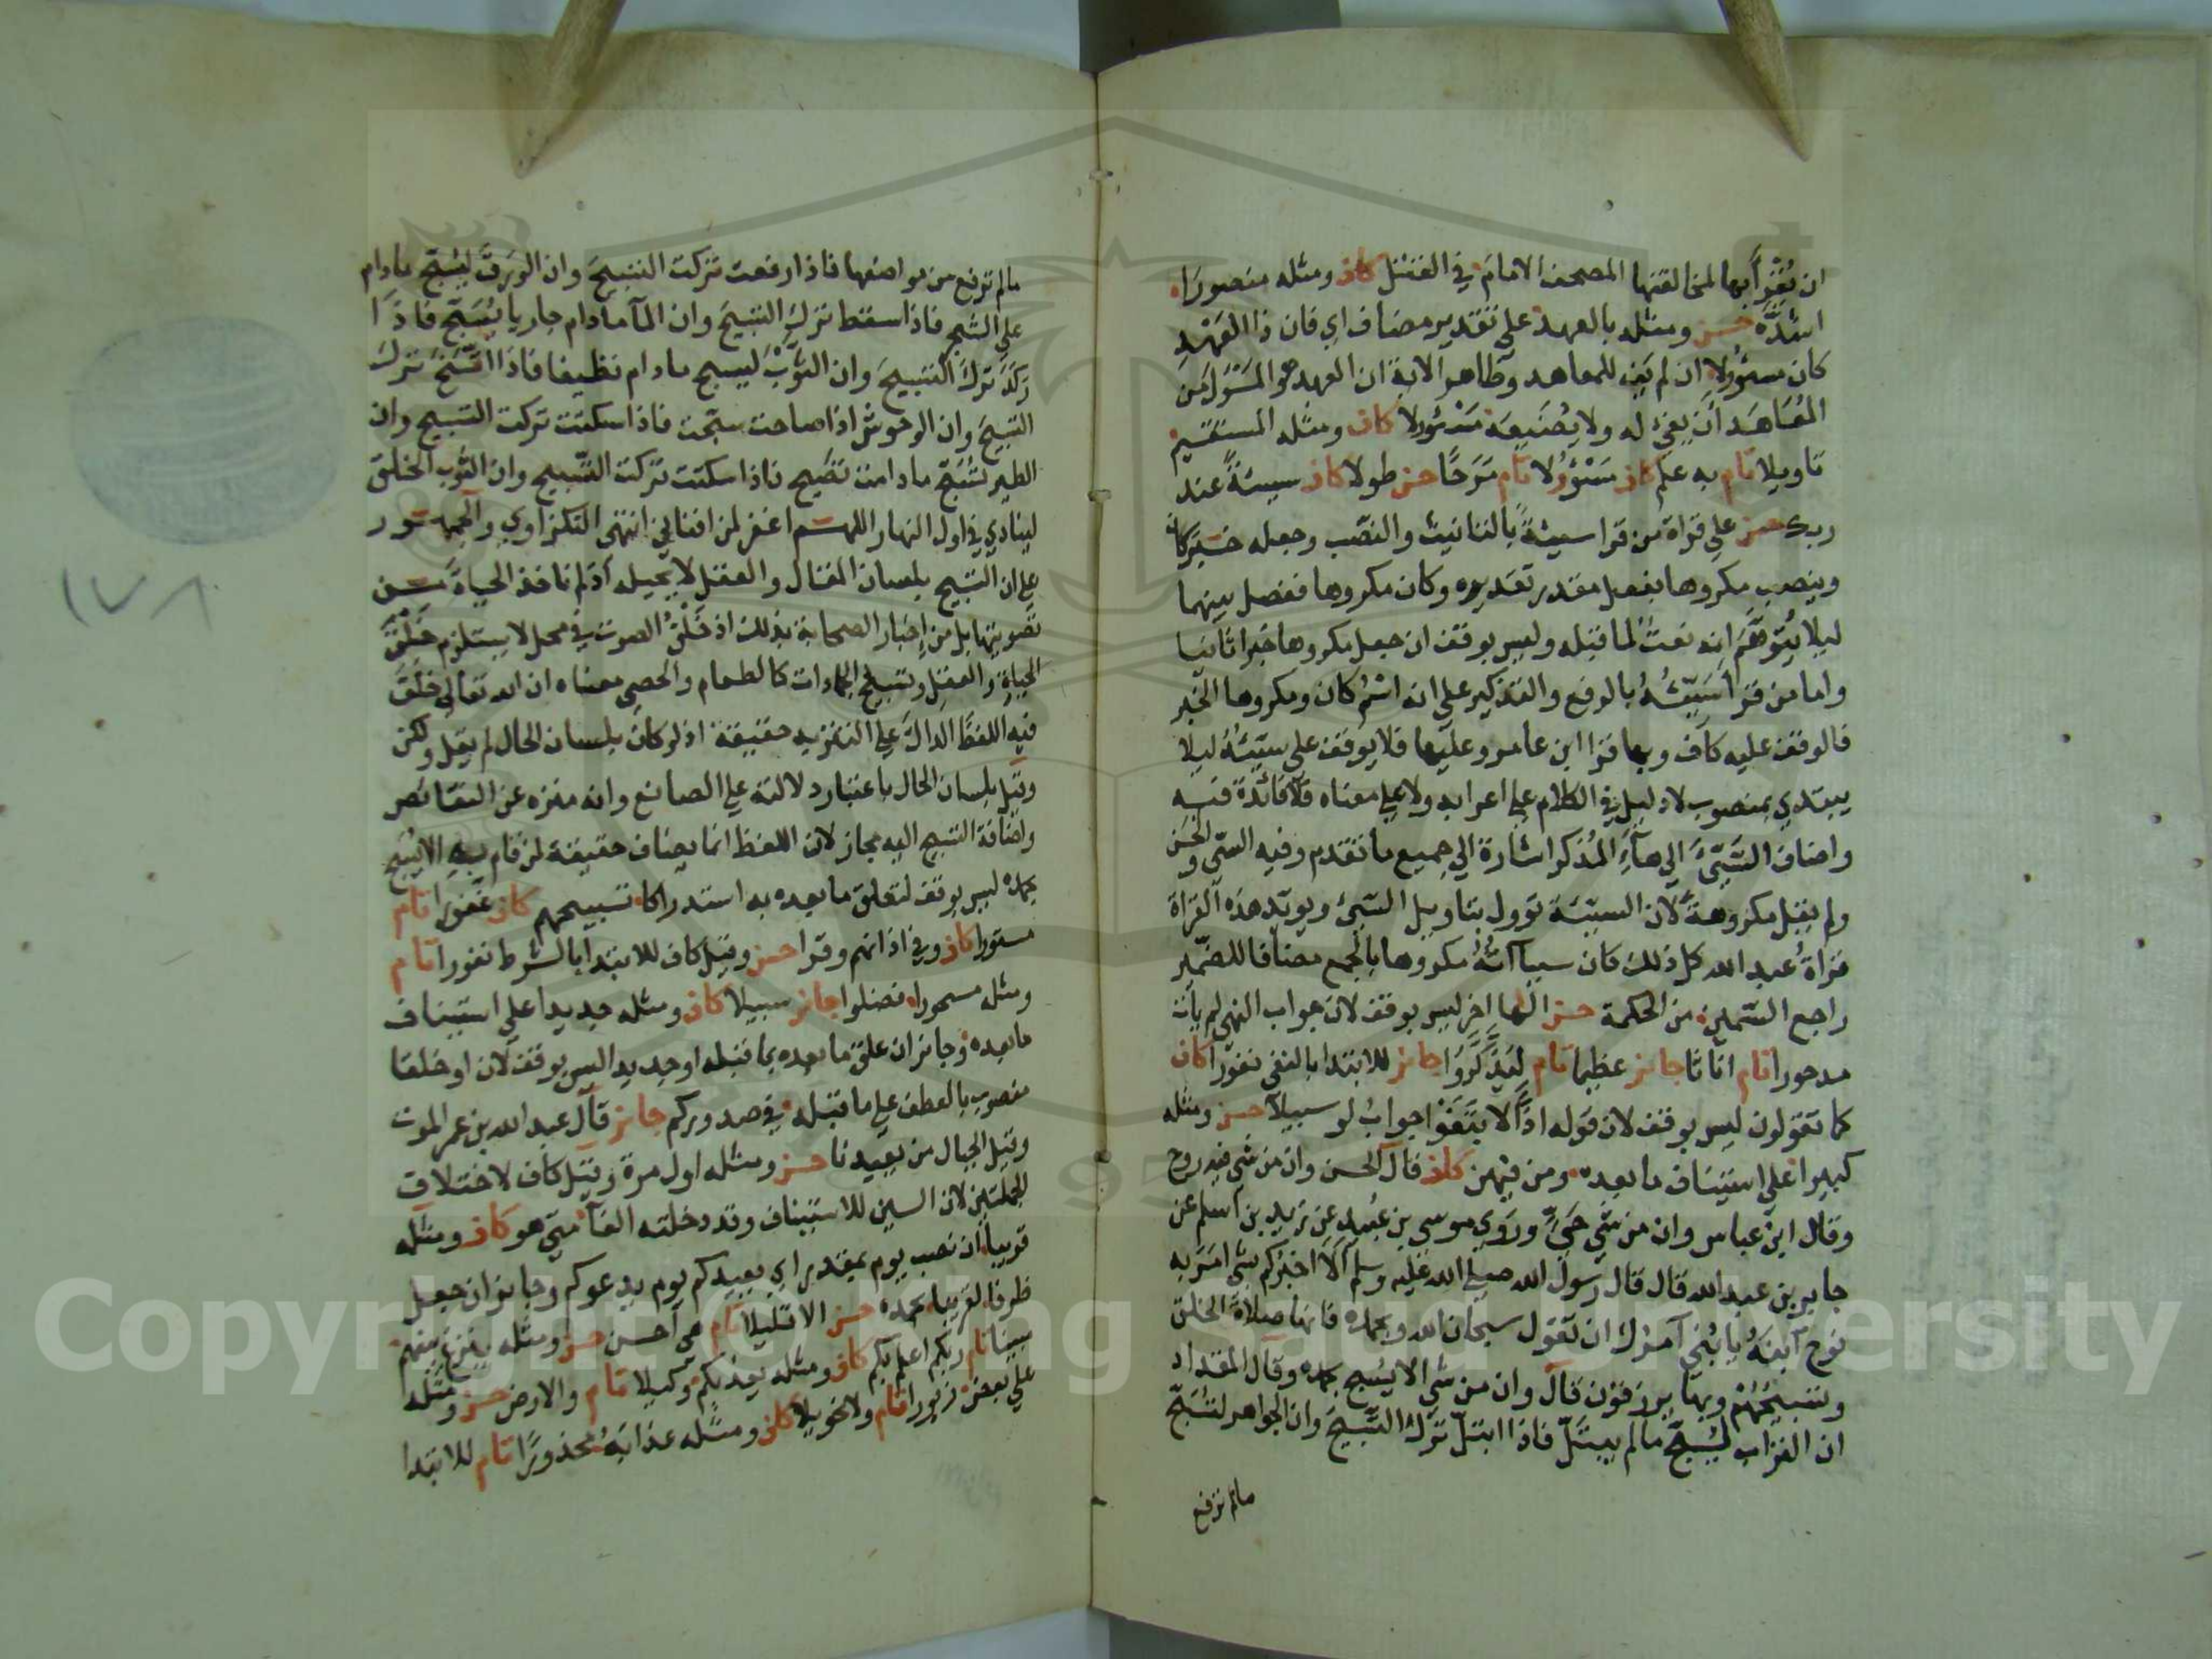 ان يُقرأ بها لمخالفتها المصحف الامام في القتل كاف ومثله منصورا
اشدّه حسن ومثله بالعهد على تقدير مضاف اي فان ذا العهد
كان مسؤلا ان لم يف للمعاهد وظاهر الاية ان العهد هو المسؤل من
المُعَاهَد ان يفي له ولا يضيعه مسئولا كاف ومثله المستقيم
تاويلا تام به علم كاف مسؤلا تام مرحا حسن طولا كاف سيئةً عند
ربك حسن على قراة من قرا سيئةً بالتانيث والنصب وجعله خبر كان
وينصب مكروها بفعل مقدر تقديره وكان مكروها ففصل بينهما
ليلا يُتوهّم انه نعتٌ لما قبله وليس بوقف ان جعل مكروها خبرا ثانيا
واما من قرا سَيّئُهُ بالرفع والتذكير على انه اسم كان ومكروها الخبر
فالوقف عليه كاف وبها قرا ابن عامر وعليها فلا يوقف على سيّئُهُ ليلا
يبتدي بمنصوب لا دليل في الكلام على اعرابه ولا على معناه فلا فائدة فيه
واضاف السّيّئ الى هاء المذكر اشارة الى جميع ما تقدم وفيه السّي والحسن
ولم يقل مكروهةً لان السيّئة تؤول بتاويل السّيئ ويؤيد هذه القراة
قراةُ عبد الله كل ذلك كان سيآته مكروها بالجمع مضافا للضمير
راجع السّمين من الحكمة حسن الها اخر ليس بوقف لان جواب النهي لم يات
مدحورا تام اناثا جائز عظيما تام ليذّكّروا جائز للابتدا بالنفي نفورا كاف
كما تقولون ليس بوقف لان قوله اذًا لابتغوا جواب لو سبيلا حسن ومثله
كبيرا على استيناف ما بعده ومن فيهن كاف قال الحسن وان من شي فيه روح
وقال ابن عباس وان من شي حيّ وروي موسى بن عُبيد عن زيد بن اسلم عن
جابر بن عبد الله قال قال رسول الله صلى الله عليه وسلم الا اخبركم بشي امر به
نوح ابنهُ يا بُنيّ آمرك ان تقول سبحان الله وبحمده فانها صلاة الخلق
وتسبيحُهُمْ وبها يرزقون قال وان من شي الا يسبح بحمده وقال المقداد
ان التراب ليُسَبِّح مالم يبتلّ فاذا ابتلّ ترك التسبيح وان الجواهر لتُسبّح
مالم ترفع
مالم ترفع من مواضعها فاذا رفعت تركت التسبيح وان الورق ليُسَبّح مادام
على الشجر فاذا سقط ترك التسبيح وان المآ مادام جاريا يُسَبّح فاذا
رَكَدَ ترك التسبيح وان الثوب ليسبح مادام نظيفا فاذا اتّسخ ترك
التسبيح وان الوحوش اذا صاحت سبّحت فاذا سكتت تركت التسبيح وان
الطير تسبّح مادامت تصيح فاذا سكتت تركت التسبيح وان الثوب الخلق
لينادي في اول النهار اللهم اغفر لمن افناني انتهى النكزاوي والجمهور
على ان التسبيح بلسان المقال والعقل لا يحيله اذ لم ناخذ الحياة من
تصويتها بل من اخبار الصحابة بذلك اذ خَلْقُ الصوت في محل لا يستلزم خَلْقَ
الحياة والعقل وتسبيح الجمادات كالطعام والحصى معناه ان الله تعالى خلق
فيه اللفظ الدال على التنزيه حقيقة اذ لو كان بلسان الحال لم يقل ولكن
وقيل بلسان الحال باعتبار دلالته على الصانع وانه منزه عن النقائص
واضافة التسبيح اليه مجاز لان اللفظ انما يضاف حقيقة لمن قام به الا يسبح
بحمده ليس بوقف لتعلق ما بعده به استدراكا تسبيحهم كاف غفورا تام
مستورا كاف وفي اذانهم وقرا حسن وقيل كاف للابتدا بالشرط نفورا تام
ومثله مسحورا فضلوا جائز سبيلا كاف ومثله جديدا على استيناف
ما بعده وجائز ان علق ما بعده بما قبله او جديدا ليس بوقف لان او خلقا
منصوب بالعطف على ما قبله في صدوركم جائز قال عبد الله بن عمر الموت
وقيل الجبال من يعيدنا حسن ومثله اول مرة وقيل كاف لاختلاف
الجملتين لان السين للاستيناف وقد دخلته الفآ متى هو كاف ومثله
قريبا ان نصب يوم بمقدر اي يعيدكم يوم يدعوكم وجايز ان جعل
ظرفا لقريبا بحمده حسن الا قليلا تام هي احسن حسن ومثله ينزغ بينهم
مبينا تام ربكم اعلم بكم كاف ومثله يعذبكم وكيلا تام والارض حسن ومثله
على بعض زبورا تام ولا تحويلا كاف ومثله عذابَهُ محذورًا تام للابتدا
١٧٨
Copyright © King Saud University